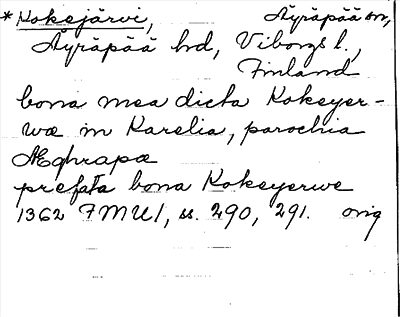 * Kokejärvi, Äyräpää sn,
Äyräpää hd, Viborgs l.,
Finland
bona mea dicta Kokeyer-
wæ in Karelia, parochia
Æghrapæ
prefata bona Kokeyerwe
1362 FMU 1, ss. 290, 291. orig